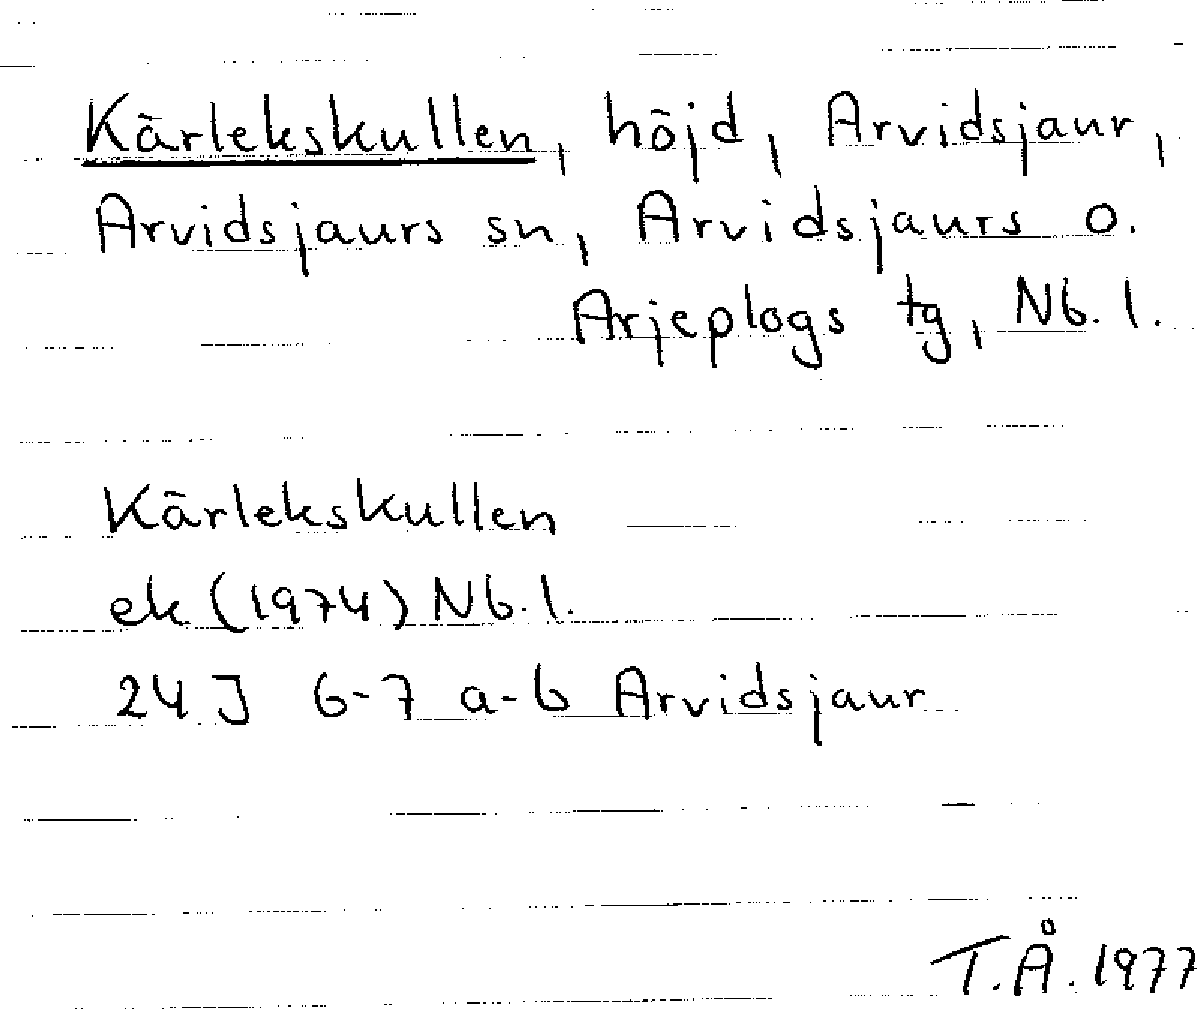 Kärlekskullen, höjd, Arvidsjaur,
Arvidsjaurs sn, Arvidsjaurs o.
Arjeplogs tg, Nb. l.
Kärlekskullen
ek (1974) Nb. l.
24 J 6-7 a-b Arvidsjaur
T.Å. 1977